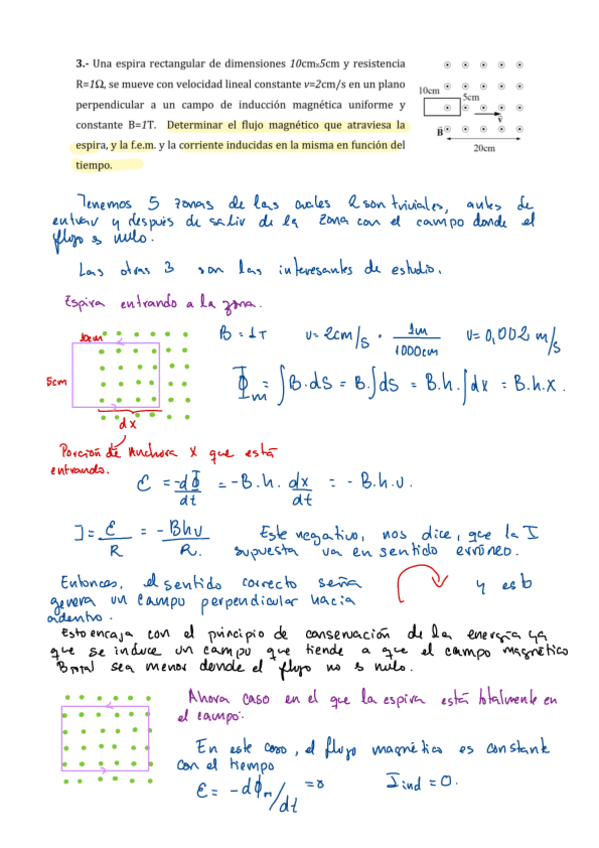 3.- Una espira rectangular de dimensiones 10cmx5cm y resistencia
R=1Ω, se mueve con velocidad lineal constante v=2cm/s en un plano
perpendicular a un campo de inducción magnética uniforme y
constante B=1T. Determinar el flujo magnético que atraviesa la
espira, y la f.e.m. y la corriente inducidas en la misma en función del
tiempo.
10cm
5cm
v
B
20cm
Tenemos 5 zonas de las cuales 2 son triviales, antes de
entrar y después de salir de la zona con el campo donde el
flujo s nulo.
Las otras 3 son las interesantes de estudio.
Espira entrando a la zona.
10cm
5cm
dx
B = 1T v = 2cm/s · 1m/1000cm v = 0,002 m/s
Φm = ∫B.dS = B.∫dS = B.h.∫dx = B.h.x.
Porción de Anchura x que está
entrando.
ε = -dΦ/dt = -B.h. dx/dt = -B.h.v.
I = ε/R = -Bhv/R. Este negativo, nos dice, que la I
supuesta va en sentido erróneo.
Entonces, el sentido correcto seña y esto
genera un campo perpendicular hacia
adentro.
Esto encaja con el principio de conservación de la energía ya
que se induce un campo que tiende a que el campo magnético
Btotal sea menor donde el flujo no s nulo.
Ahora caso en el que la espira está totalmente en
el campo.
En este caso, el flujo magnético es constante
con el tiempo
ε = -dΦm/dt = 0 Iind = 0.